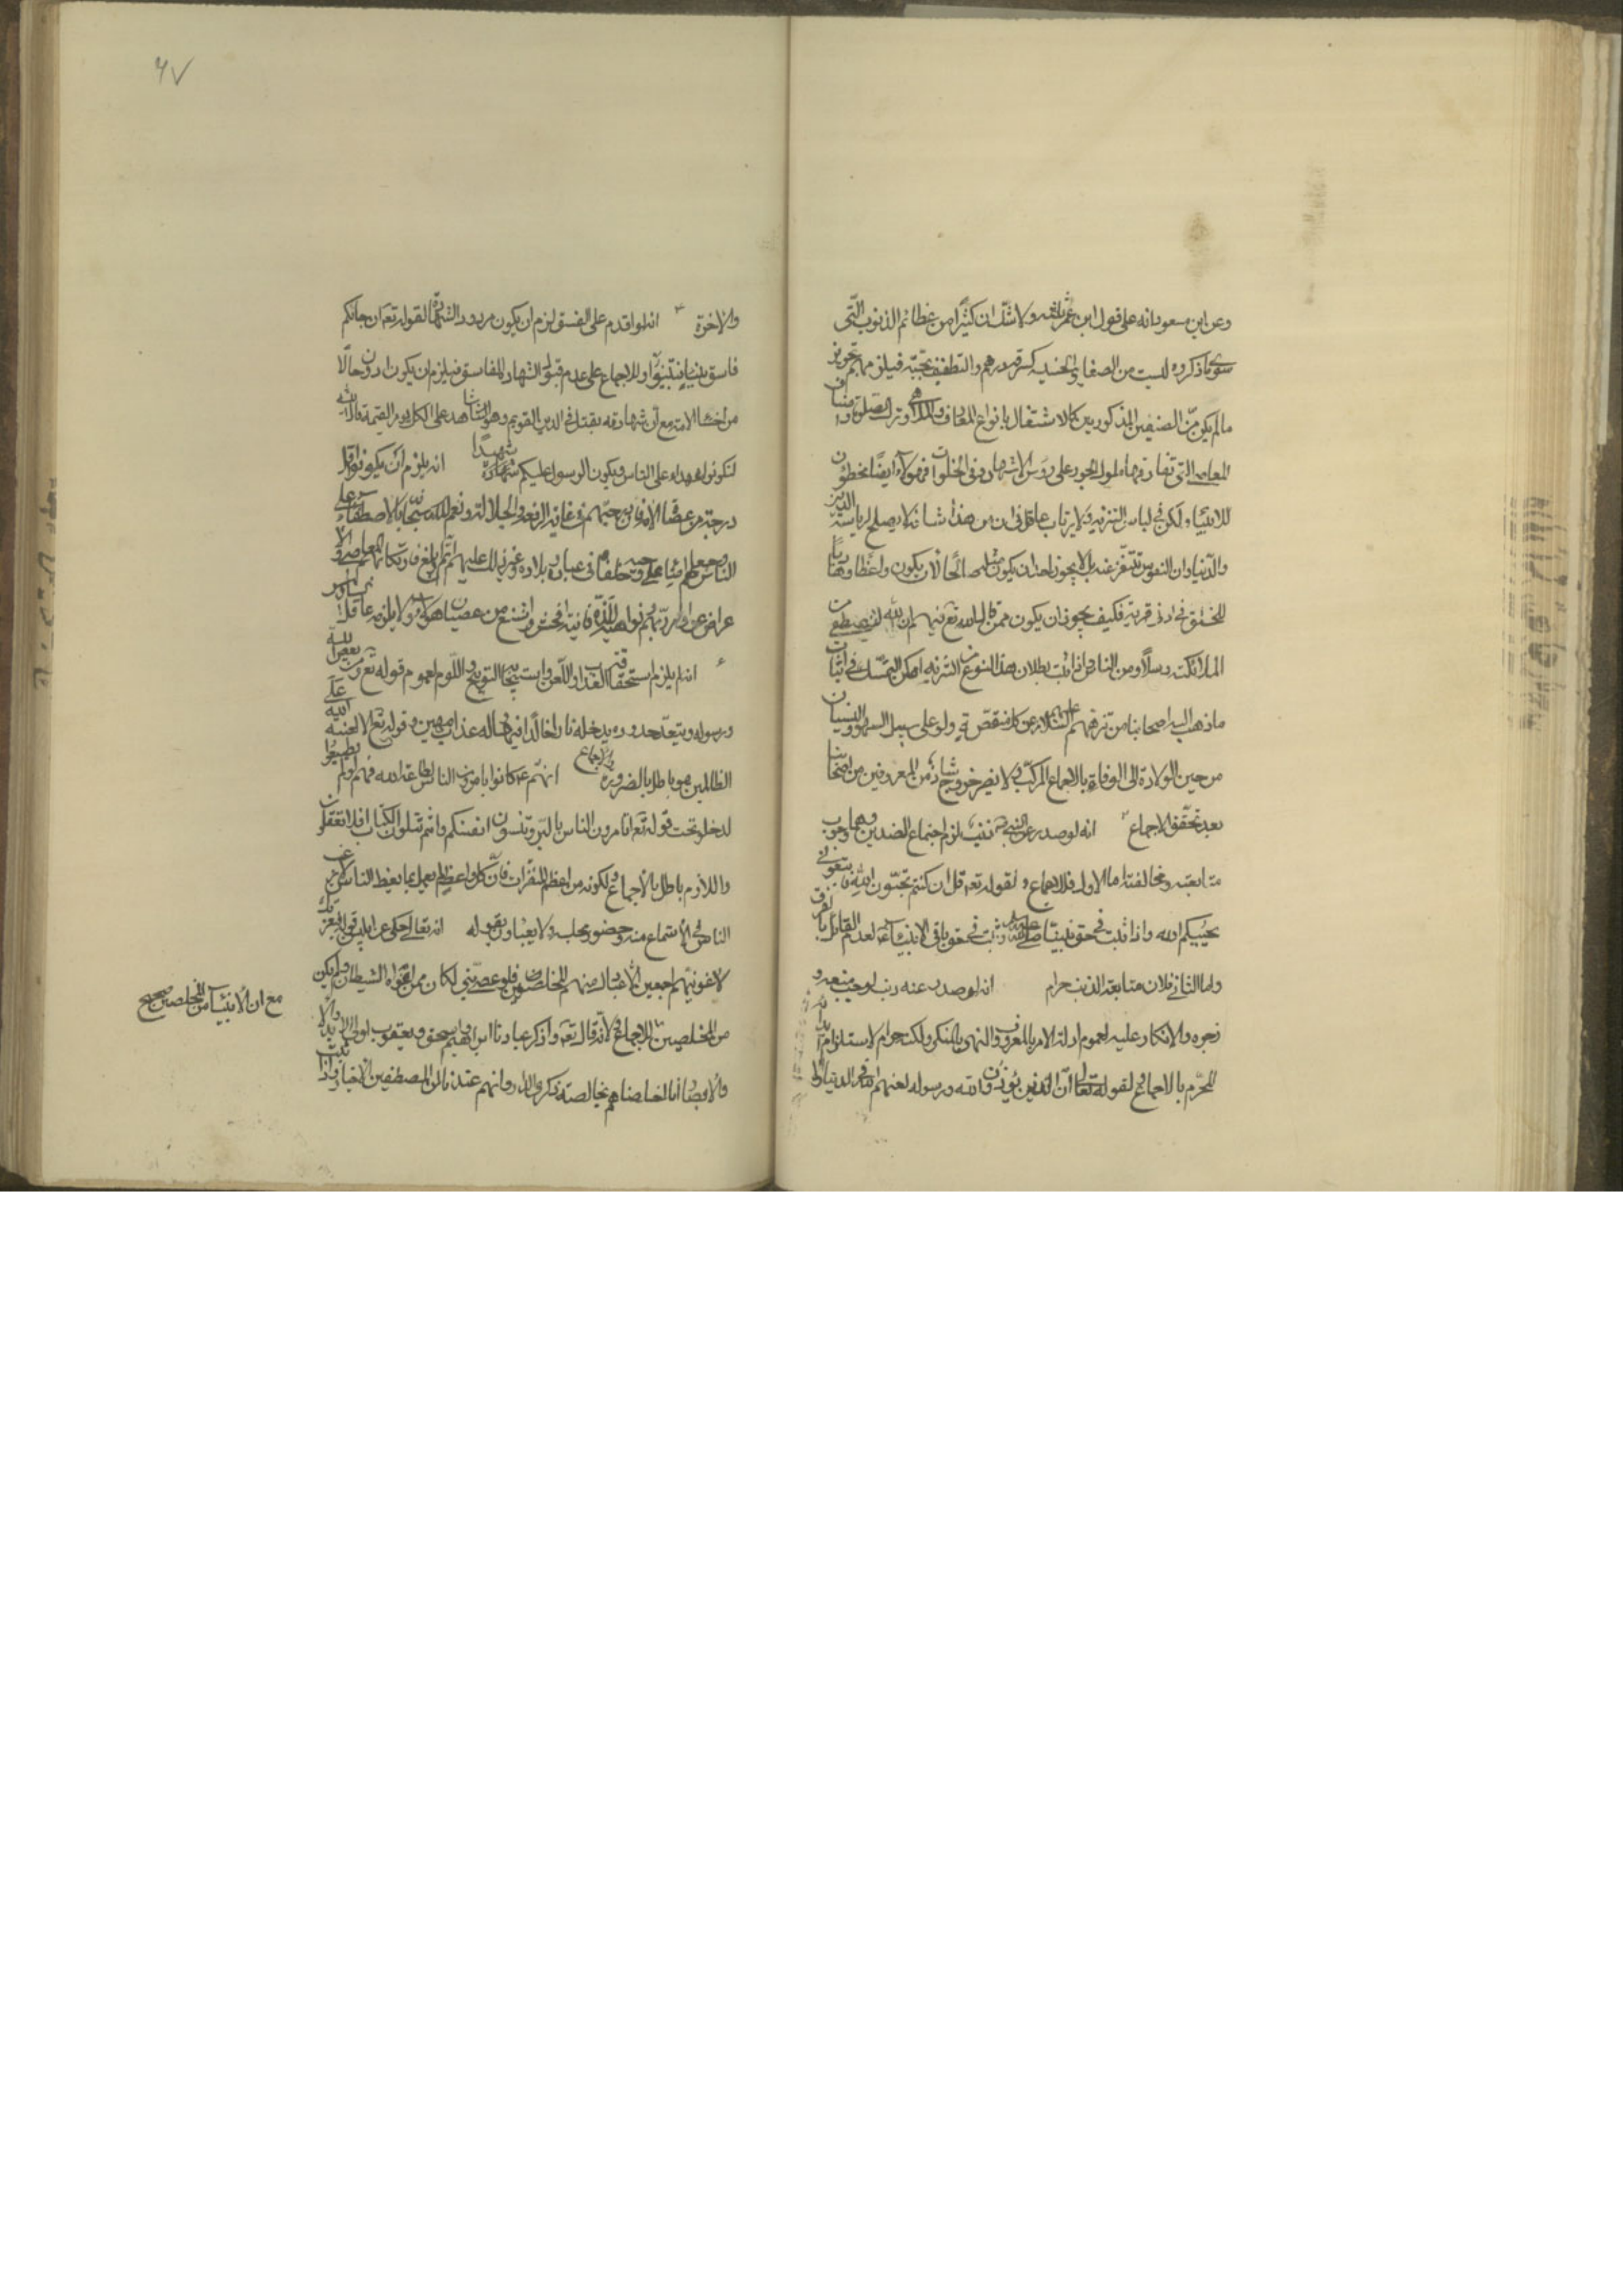 وعن ابن مسعود انه على قول ابن عمر ثلثه ولا شك ان كثيرا من عظائم الذنوب التى
سوى ما ذكروه ليست من الصغاير الخسيسة كسرقة درهم والتطفيف بحبة فيلزمهم تجويز
ما لم يكن من الصنفين المذكورين كالاشتغال بانواع المعازف والملاهى وترك الصلوة و
المعاصى التى تقارفها ملوك الجور على رؤس الاشهاد وفى الخلوات فهولاء ايضا مخطؤن
للانبياء ولكن فى لباس التنزيه ولا يرتاب عاقل فى ان من هذا شانه لا يصلح لرياسة الدين
والدنيا وان النفوس تتنفر عنه بل لا يجوز احد ان يكون مثله صالحا لان يكون واعظا وهاديا
للخلق فى ادنى قرية فكيف يجوز ان يكون ممن قال الله تعم فيهم ان الله يصطفى من
الملائكة رسلا ومن الناس واذا ثبت بطلان هذا النوع من التنزيه امكن التمسك فى اثبات
ما ذهب اليه اصحابنا من تنزههم عليهم السلام عن كل منقصة ولو على سبيل السهو والنسيان
من حين الولادة الى الوفاة بالاجماع المركب ولا يضر خروج شاذ من المعروفين من اصحابنا
بعد تحقق الاجماع انه لو صدر عن النبى ذنب لزم اجتماع الضدين وهما وجوب
متابعته ومخالفته اما الاول فللاجماع ولقوله تعم قل ان كنتم تحبون الله فاتبعونى
يحببكم الله واذا ثبت فى حق نبينا صلى الله عليه ثبت فى حق باقى الانبياء لعدم القائل بالفرق
واما الثانى فلان متابعة الذنب حرام انه لو صدر عنه ذنب لوجب منعه و
زجره والانكار عليه لعموم ادلة الامر بالمعروف والنهى عن المنكر ولكنه حرام لاستلزامه ايذاءه
المحرم بالاجماع ولقوله تعالى ان الذين يؤذون الله ورسوله لعنهم الله فى الدنيا
٦٧
والاخرة ٣ انه لو اقدم على الفسق لزم ان يكون مردود الشهادة لقوله تعم ان جائكم
فاسق بنبا فتبينوا وللاجماع على عدم قبول الشهادة للفاسق فيلزم ان يكون ادون حالا
من احاد الامة مع ان شهادته تقبل فى الدين القويم وهو الشاهد على الكل يوم القيمة قال الله
لتكونوا شهداء على الناس ويكون الرسول عليكم شهيدا انه يلزم ان يكونوا اقل
درجة من عصاة الامة فان درجتهم فى غاية الرفعة والجلالة ونعم الله سبحانه بالاصطفاء على
الناس وجعلهم امناء على وحيه وخلفاء فى عباده وبلاده وغير ذلك عليهم اتم وابلغ فارتكابهم المعاصى والا
عراض عن اوامر ربهم ونواهيه للذة فانية افحش واشنع من عصيان هؤلاء ولا يلتزمه عاقل
٤ انه يلزم استحقاقه العذاب واللعن واستيجابه التوبيخ واللوم لعموم قوله تعم ومن يعص الله
ورسوله ويتعد حدوده يدخله نارا خالدا فيها وله عذاب مهين وقوله تعم الا لعنة الله على
الظالمين وهو باطل بالضرورة والاجماع انهم ع كانوا يامرون الناس بطاعة الله فلو لم يطيعوا
لدخلوا تحت قوله تعم اتامرون الناس بالبر وتنسون انفسكم وانتم تتلون الكتاب افلا تعقلون
واللازم باطل بالاجماع ولكونه من اعظم المنفرات فان كل واعظ لم يعمل بما يعظ الناس به لا يرغب
الناس فى الاستماع منه وحضور مجلسه ولا يعباون بقوله انه تعالى حكى عن ابليس قوله فبعزتك
لاغوينهم اجمعين الا عبادك منهم المخلصين فلو عصى نبى لكان ممن اغواه الشيطان ولم يكن
من المخلصين مع ان الانبياء من المخلصين للاجماع ولانه قال تعم واذكر عبادنا ابراهيم واسحق ويعقوب اولى الايدى
والابصار انا اخلصناهم بخالصة ذكرى الدار وانهم عندنا لمن المصطفين الاخيار واذا ثبت
مع ان الانبياء من المخلصين صحيح